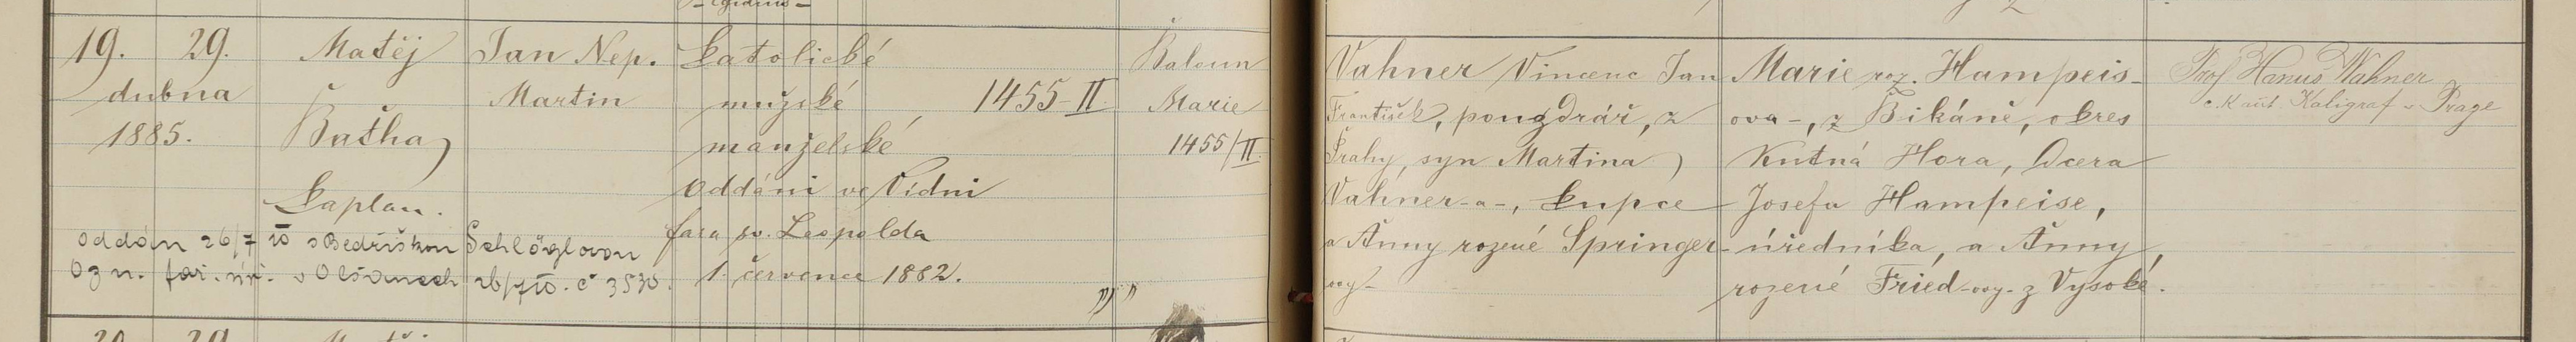 19. 29. Matěj Jan Nep. katolické Baloun
dubna Martin mužské 1455-II Marie
1885. Baťha, manželské 1455/II.
oddáni ve Vídni
kaplan.
fara sv. Leopolda
1. července 1882.
oddán 26/7 10 s Bedřiškou Schlöglovou
Ozn. far. úř. v Olšanech 26/7 10. č 3530.
Vahner Vincenc Jan
František, pouzdrář, z
Prahy, syn Martina
Vahner-a-, kupce
a Anny rozené Springer-
ovy-
Marie roz. Hampeis-
ova-, z Bikáně, okres
Kutná Hora, dcera
Josefa Hampeise,
úředníka, a Anny,
rozené Fried-ovy- z Vysoké.
Prof Hanus Wahner
Kaligraf Prage